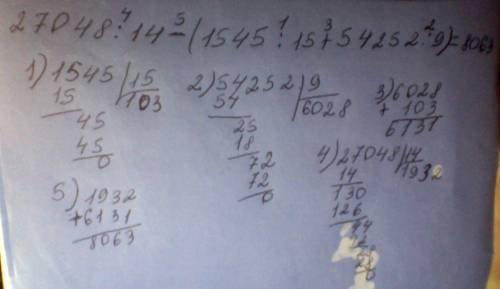 27048:14-(1545:15+54252:9)=8063
4 5 1 3 2
1) 1545 | 15
15 103
45
45
0
2) 54252 | 9
54 6028
25
18
72
72
0
3) 6028
+ 103
6131
4) 27048 | 14
14 1932
130
126
44
0
5) 1932
+6131
8063